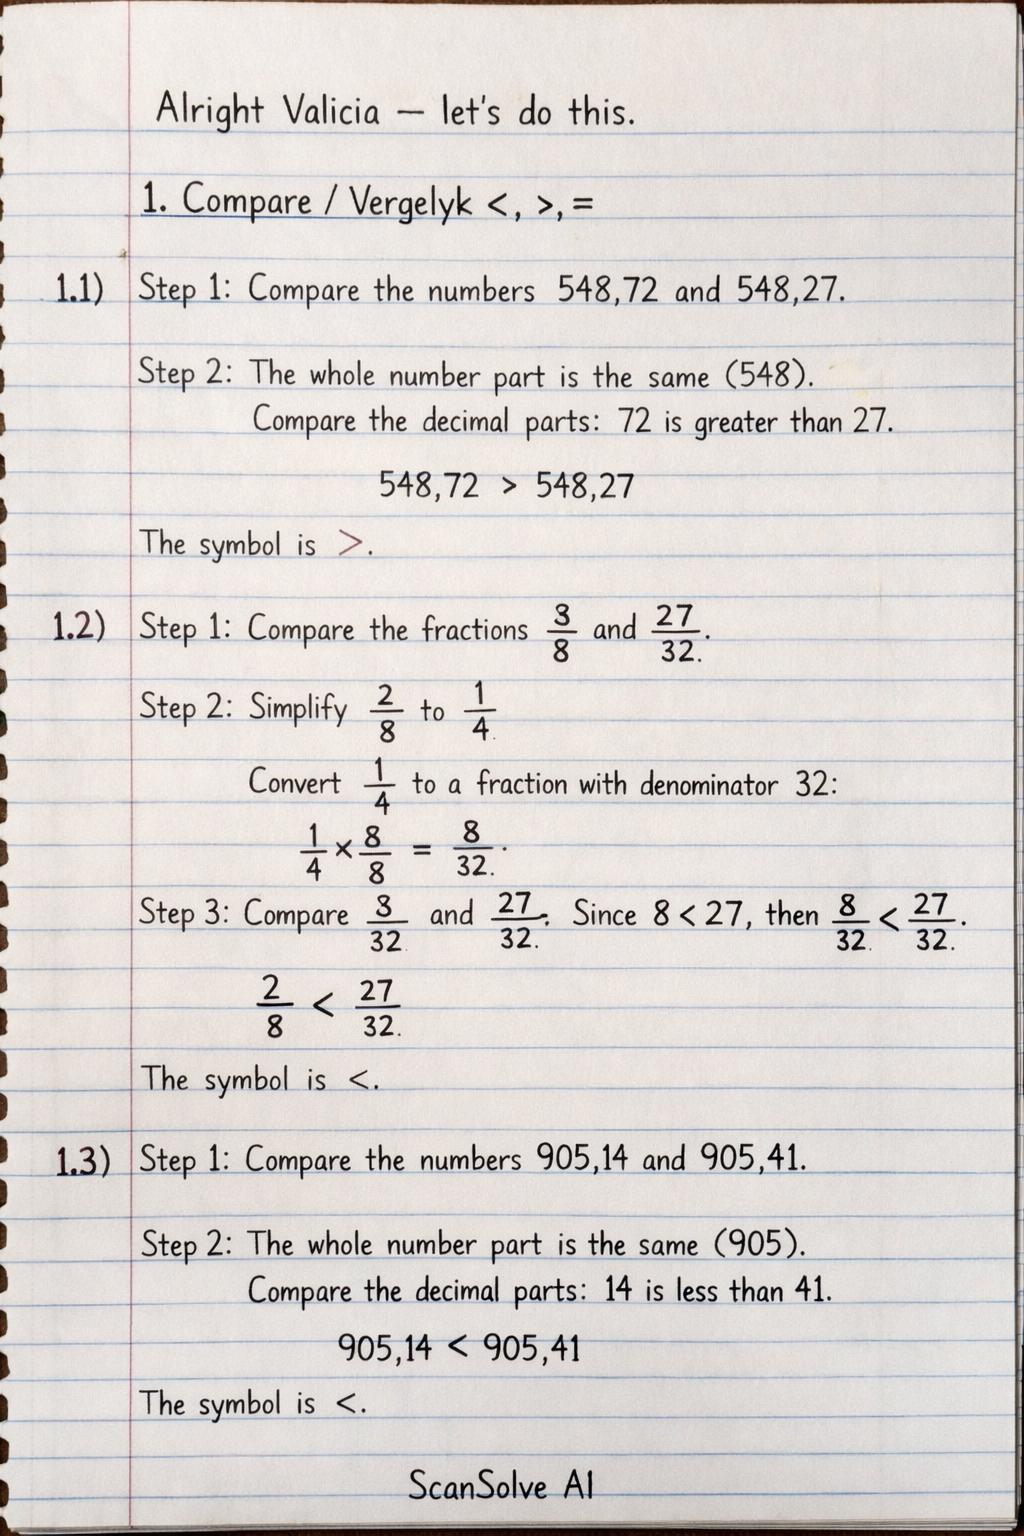 Alright Valicia — let's do this.
1. Compare / Vergelyk <, >, =
1.1) Step 1: Compare the numbers 548,72 and 548,27.
Step 2: The whole number part is the same (548).
Compare the decimal parts: 72 is greater than 27.
548,72 > 548,27
The symbol is >.
1.2) Step 1: Compare the fractions 3/8 and 27/32.
Step 2: Simplify 2/8 to 1/4.
Convert 1/4 to a fraction with denominator 32:
1/4 × 8/8 = 8/32.
Step 3: Compare 3/32 and 27/32. Since 8 < 27, then 8/32 < 27/32.
2/8 < 27/32.
The symbol is <.
1.3) Step 1: Compare the numbers 905,14 and 905,41.
Step 2: The whole number part is the same (905).
Compare the decimal parts: 14 is less than 41.
905,14 < 905,41
The symbol is <.
ScanSolve AI